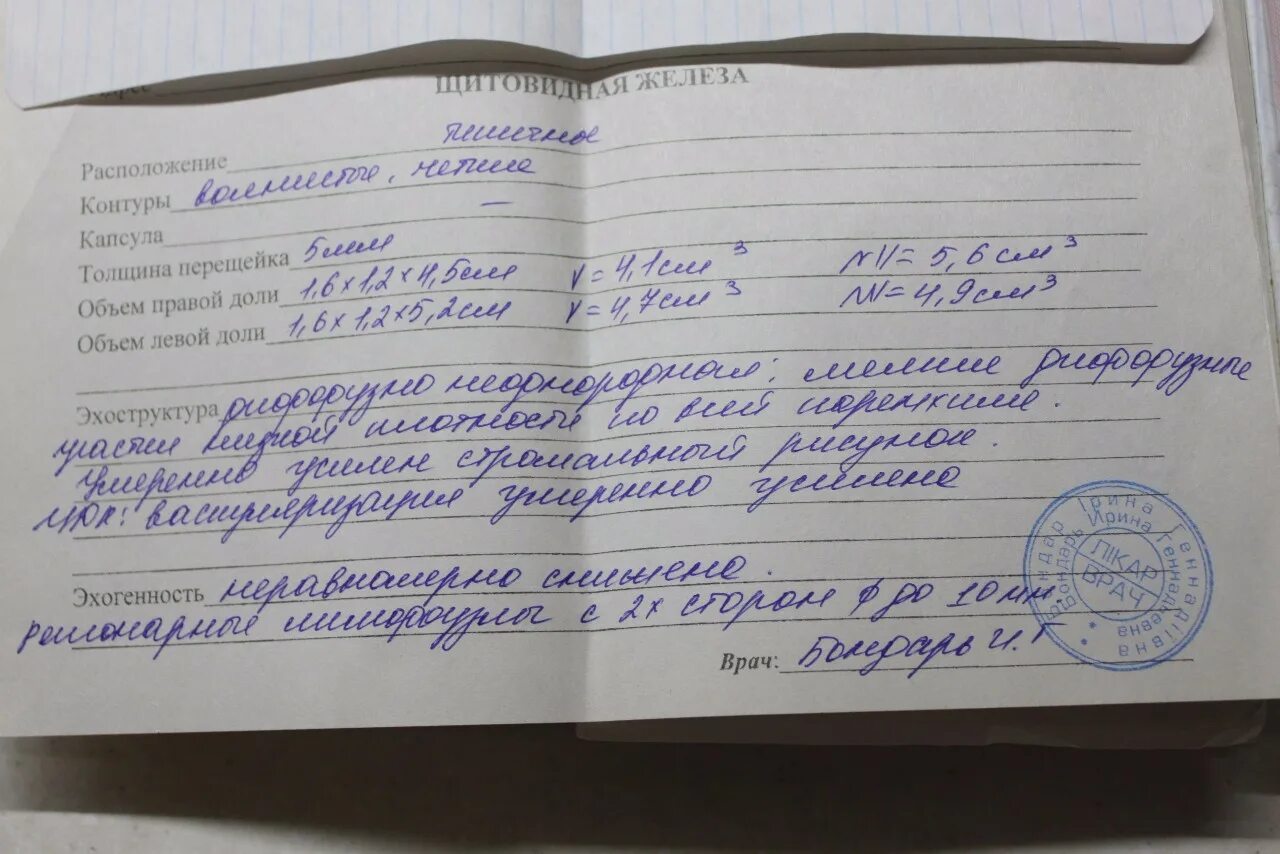 ЩИТОВИДНАЯ ЖЕЛЕЗА
Расположение типичное
Контуры волнистые, четкие
Капсула —
Толщина перещейка 5мм
Объем правой доли 1,6х1,2х4,5см V=4,1см³ NV=5,6см³
Объем левой доли 1,6х1,2х5,2см V=4,7см³ NV=4,9см³
Эхоструктура диффузно неоднородная: мелкие диффузные
участки жидкой плотности по всей паренхиме.
Умеренно усилен стромальный рисунок.
ЦДК: васкуляризация умеренно усилена
Эхогенность неравномерно снижена.
регионарные лимфоузлы с 2х сторон ф до 10мм
Врач: Бондарь И.Г
Бондар Ірина Геннадіївна
Бондарь Ирина Геннадьевна
ЛІКАР
ВРАЧ